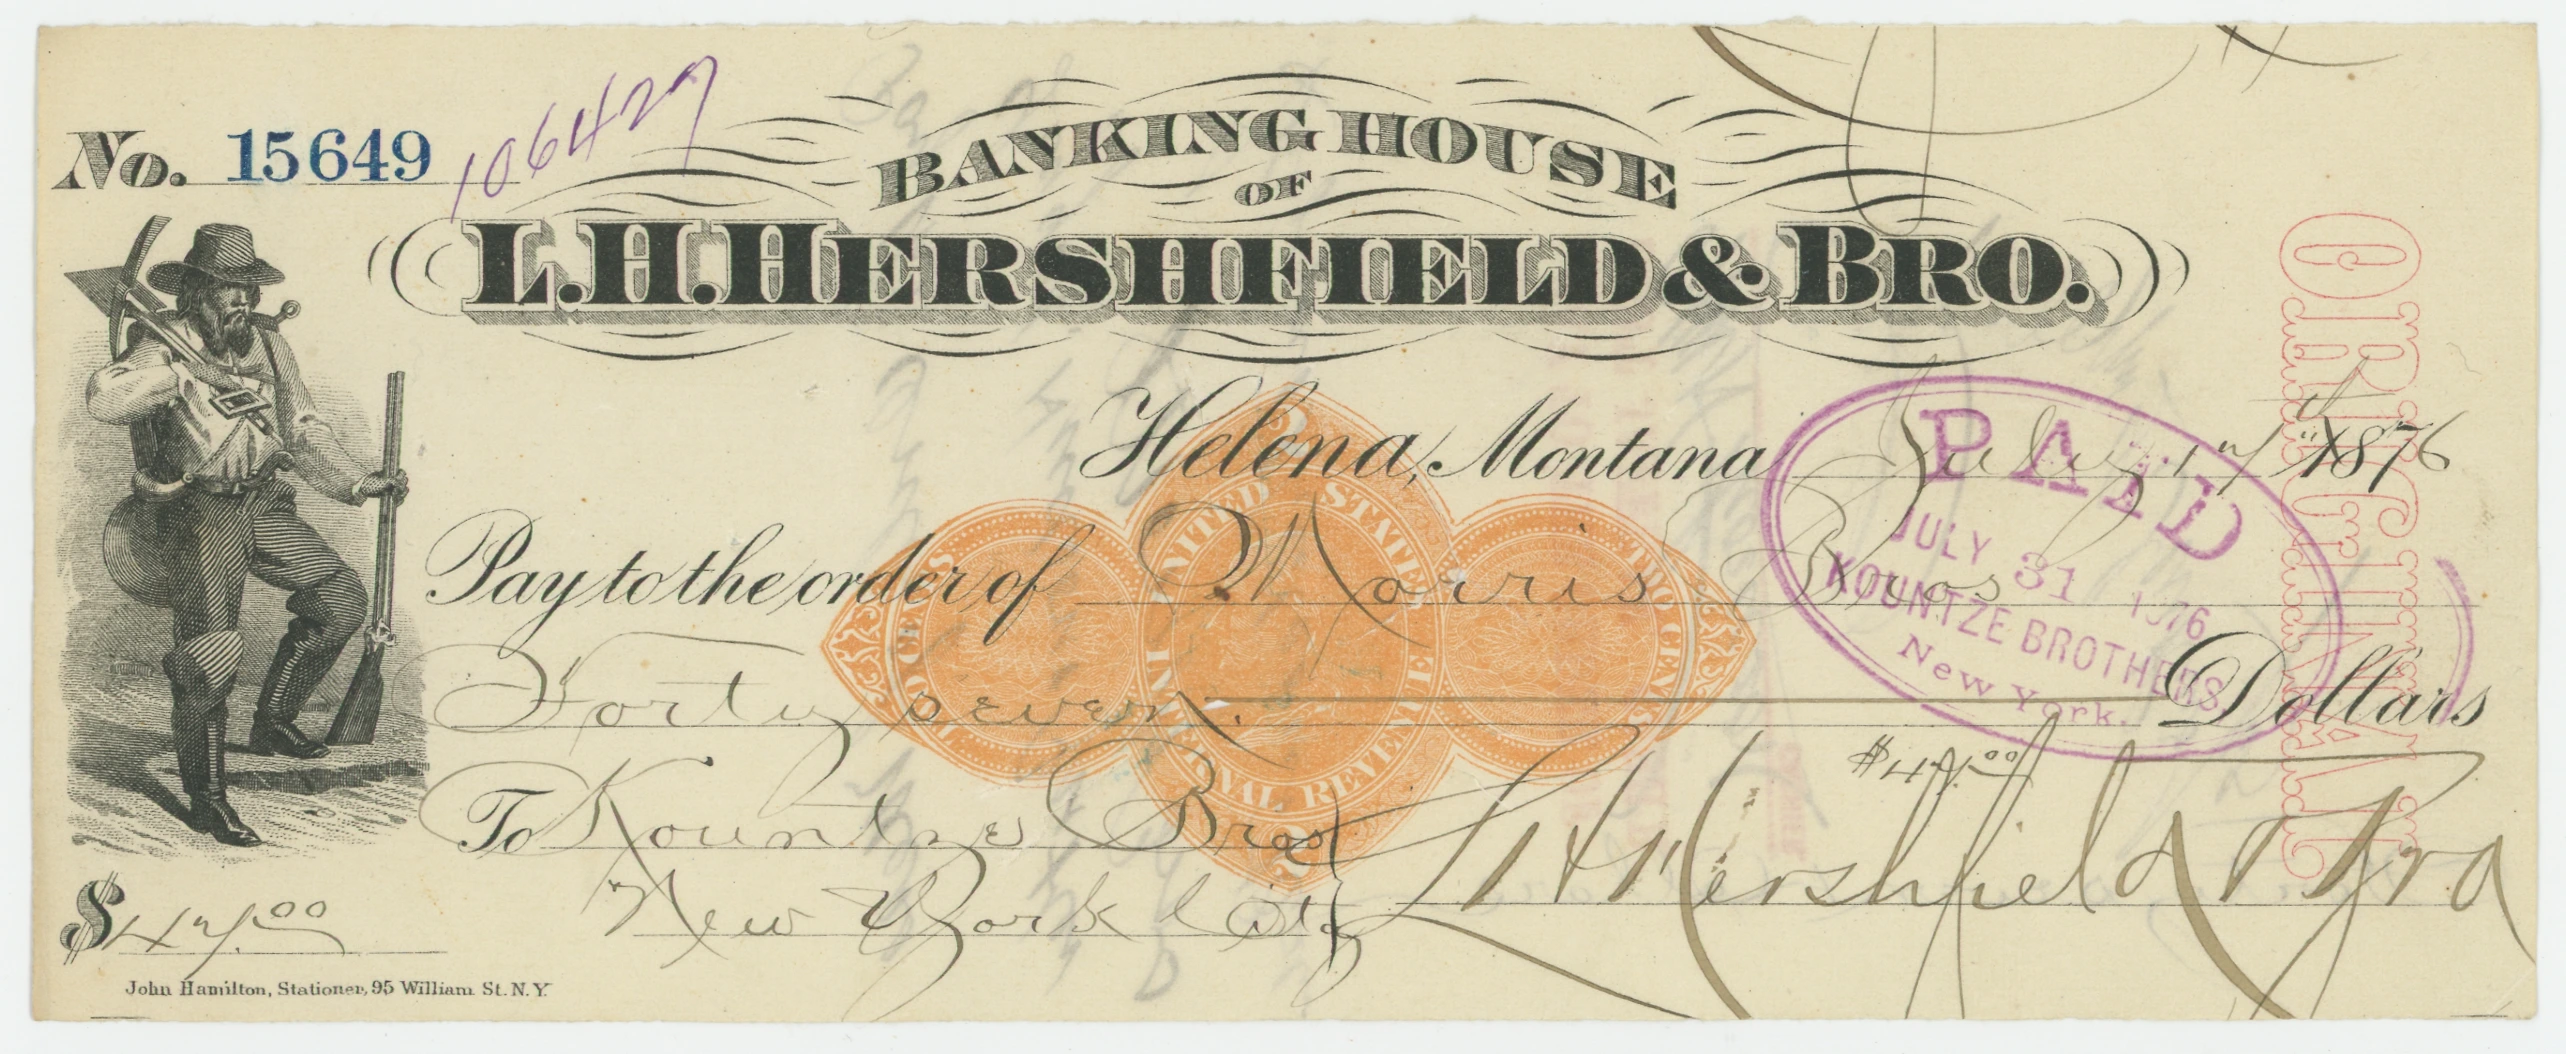 No. 15649
106427
BANKING HOUSE
OF
L. H. HERSHFIELD & BRO.
ORIGINAL
Helena, Montana July 17" 1876
Pay to the order of Morris Bros
Forty seven. Dollars
$47.00
To Kountze Bros
New York City
L H Hershfield & Bro
$47.00
John Hamilton, Stationer, 95 William St. N.Y.
UNITED STATES
INTERNAL REVENUE
TWO CENTS
TWO CENTS
2
2
PAID
JULY 31 1876
KOUNTZE BROTHERS
New York.